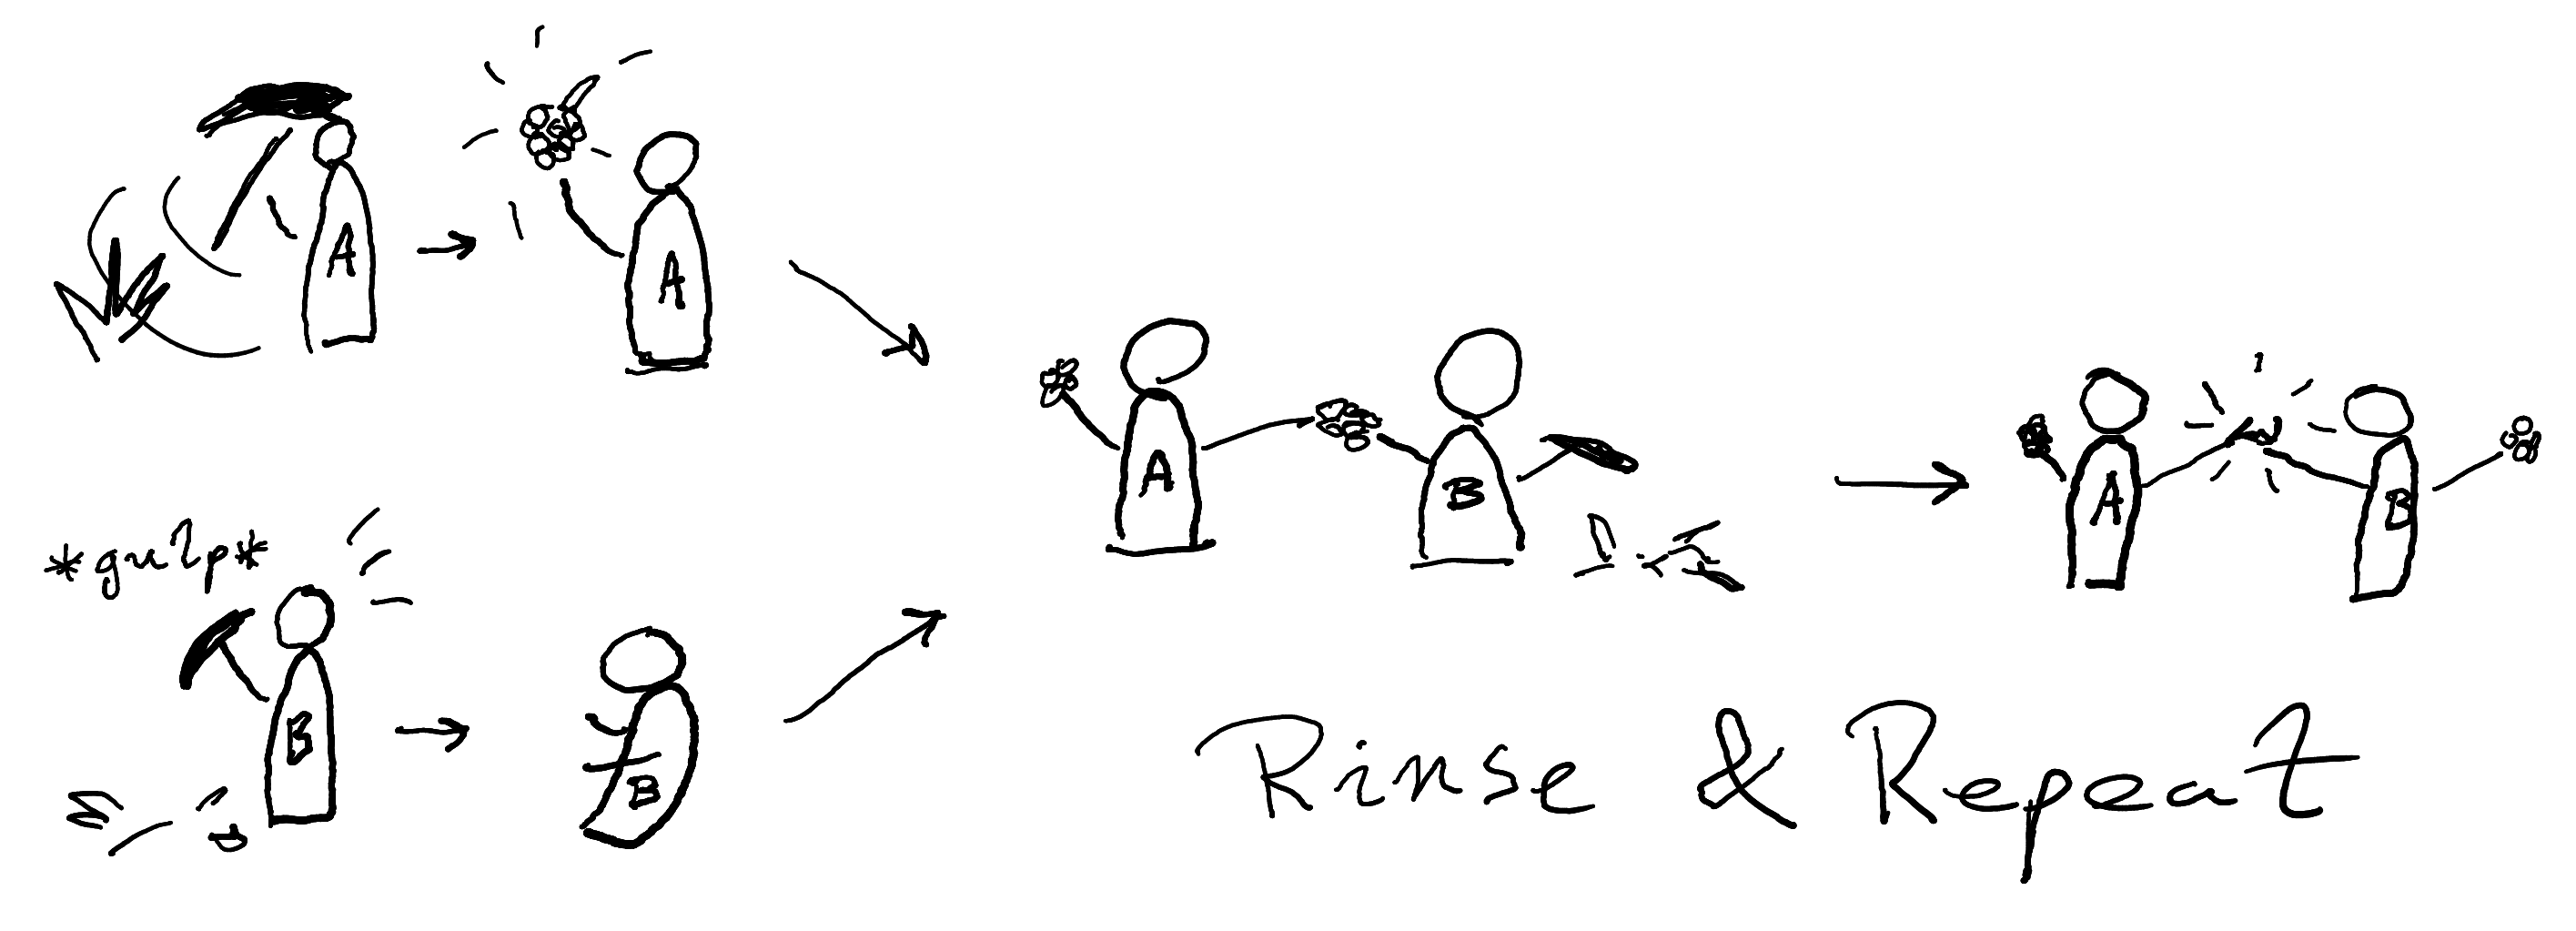 A
A
*gulp*
B
B
A
B
A
B
Rinse & Repeat